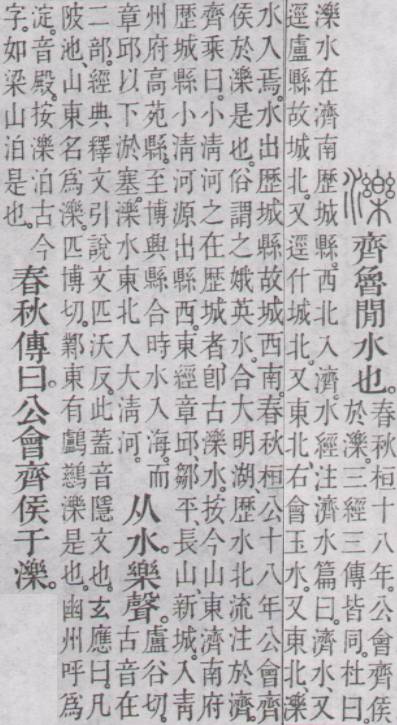 濼 齊魯閒水也。
春秋桓十八年。公會齊侯
於濼。三經三傳皆同。杜曰
濼水在濟南歷城縣。西北入濟。水經注濟水篇曰。濟水又
逕盧縣故城北。又逕什城北。又東北、右會玉水。又東北濼
水入焉。水出歷城縣故城西南。春秋桓公十八年公會齊
侯於濼是也。俗謂之娥英水。合大明湖。歷水北流注於濟。
齊乘曰。小清河之在歷城者卽古濼水。按今山東濟南府
歷城縣小清河源出縣西。東經章邱、鄒平、長山、新城。入青
州府高苑縣。至博興縣合時水入海。而
章邱以下淤塞。濼水東北入大清河。
从水。樂聲。
盧谷切。
古音在
二部。經典釋文引說文匹沃反。此蓋音隱文也。玄應曰。凡
陂池、山東名爲濼。匹博切。鄴東有鸕鷀濼是也。幽州呼爲
淀。音殿。按濼泊古今
字。如梁山泊是也。
春秋傳曰。公會齊侯于濼。